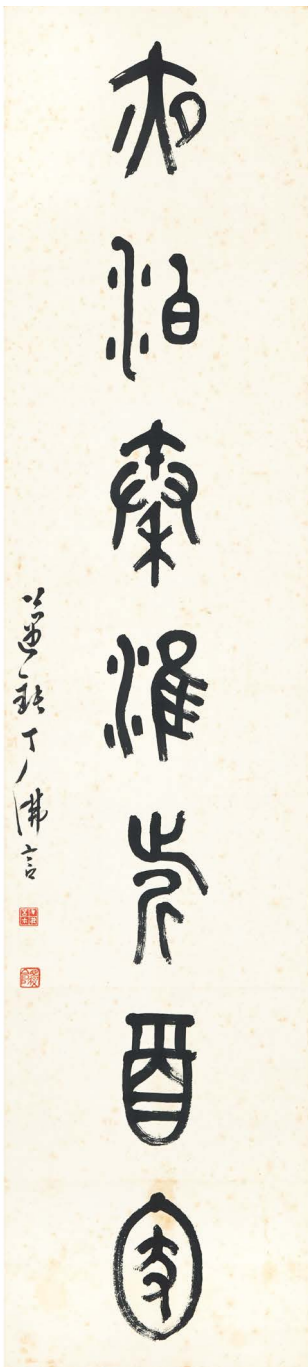 夜泊秦淮近酒家
邁鈍丁佛言